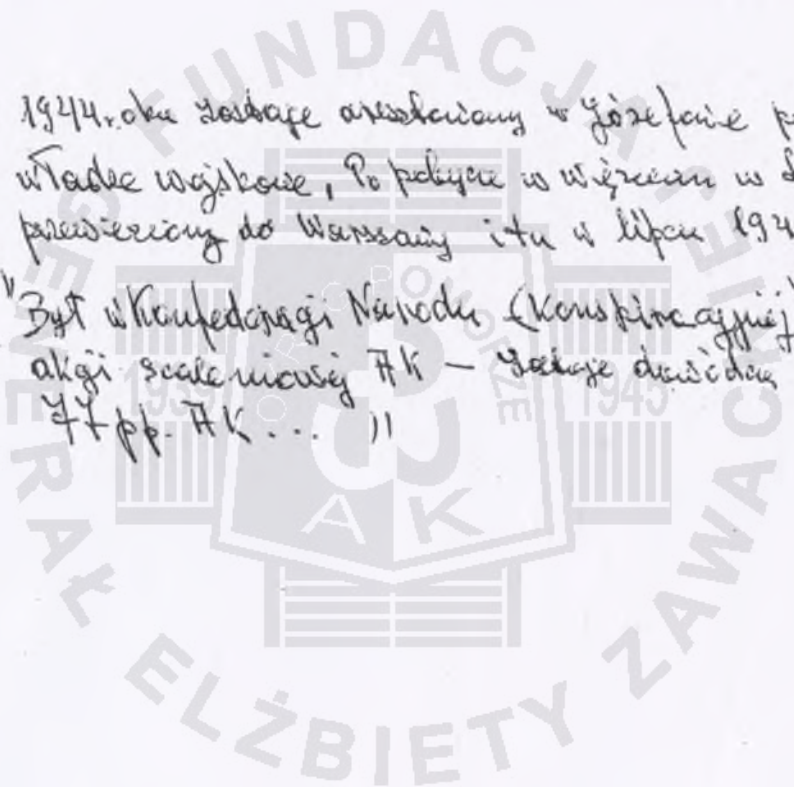 1944 roku zostaje aresztowany w Józefowie p
władze wojskowe, Po pobycie w więzieniu w
przewieziony do Warszawy i tu w lipcu 194
"Był w Konfederacji Narodu (Konspiracyjnej)
akcji scaleniowej AK — zostaje dowódcą
77 pp. AK ... "
FUNDACJA GENERAŁ ELŻBIETY ZAWACKIEJ
POMORZE
1939 1945
AK